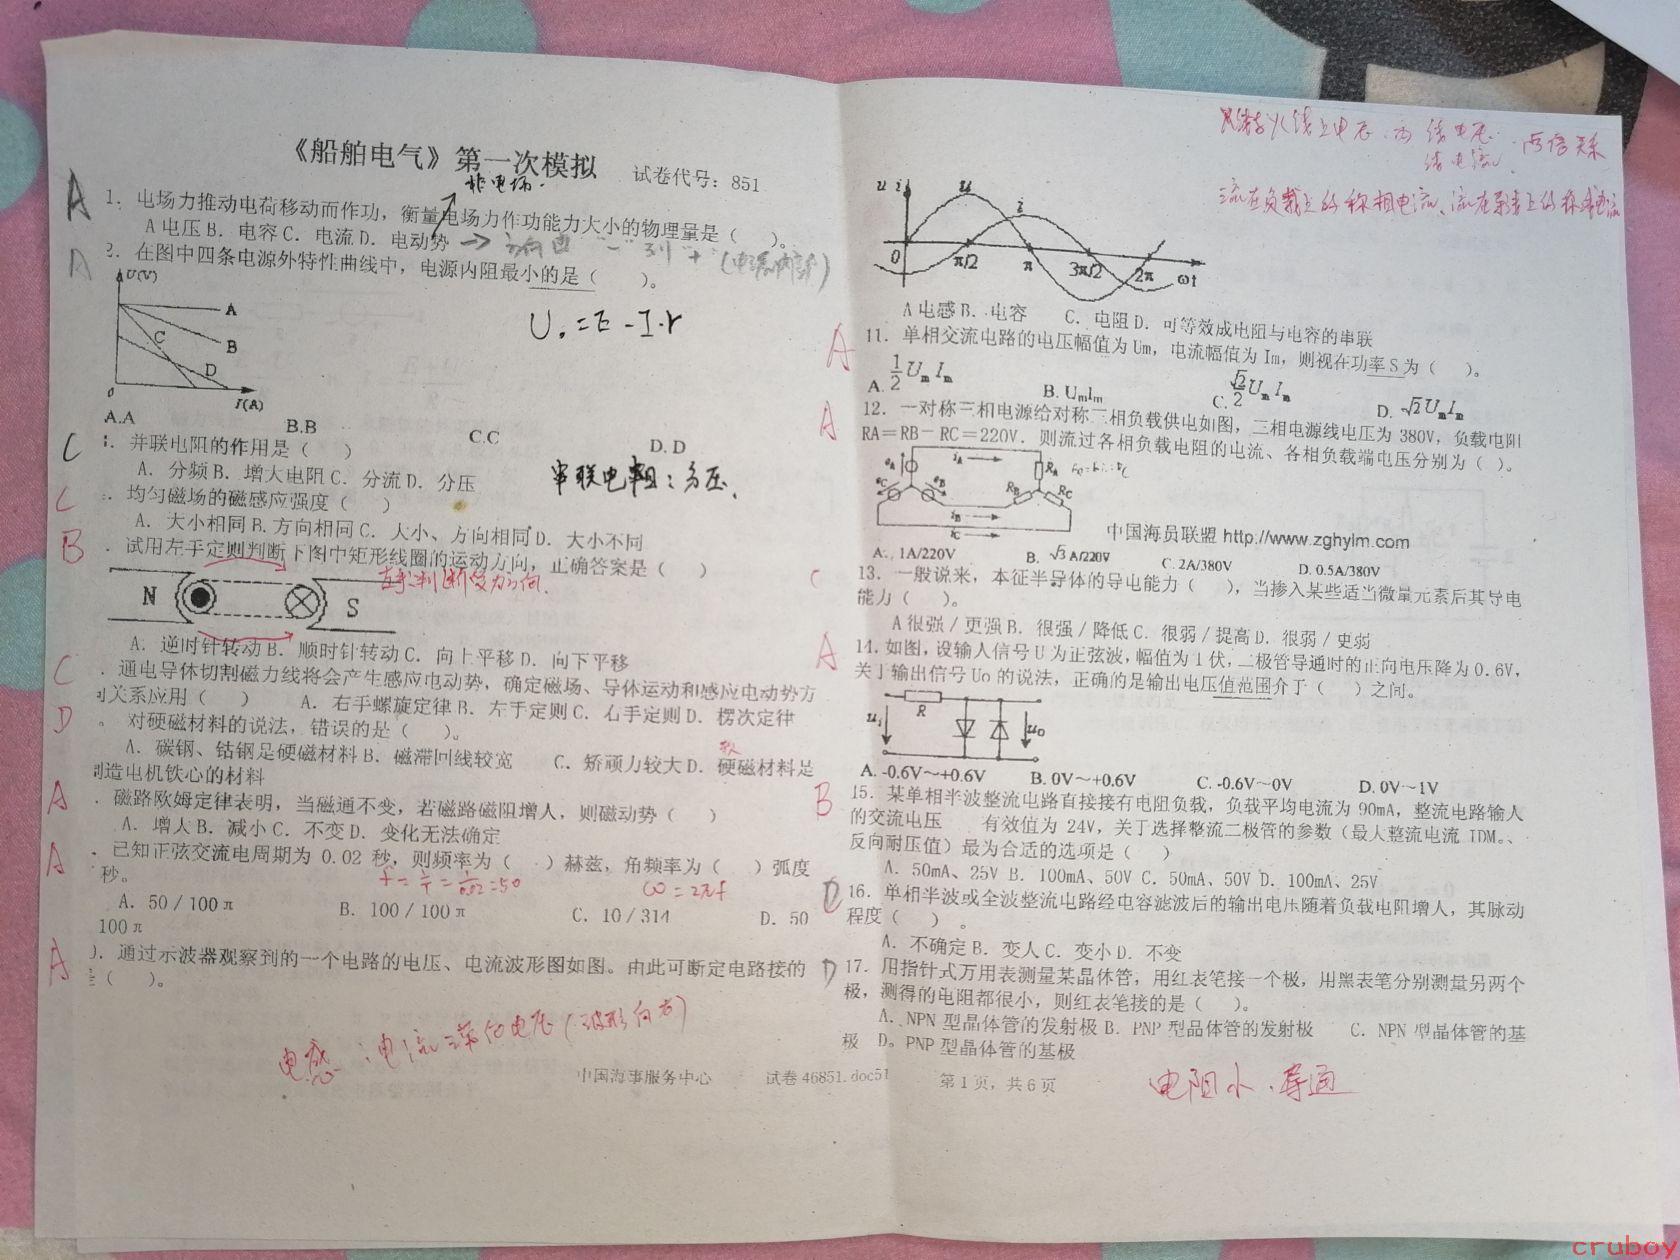 《船舶电气》第一次模拟 试卷代号：851
非电场.
A
1. 电场力推动电荷移动而作功，衡量电场力作功能力大小的物理量是（ ）。
A 电压 B. 电容 C. 电流 D. 电动势
A
2. 在图中四条电源外特性曲线中，电源内阻最小的是（ ）。
U(V)
A
B
C
D
0
I(A)
U。=E-I·r
A.A B.B C.C D.D
C
. 并联电阻的作用是（ ）
A. 分频 B. 增大电阻 C. 分流 D. 分压
串联电阻：分压.
C
. 均匀磁场的磁感应强度（ ）
A. 大小相同 B. 方向相同 C. 大小、方向相同 D. 大小不同
B
. 试用左手定则判断下图中矩形线圈的运动方向，正确答案是（ ）
左手：判断受力方向.
N S
A. 逆时针转动 B. 顺时针转动 C. 向上平移 D. 向下平移
C
. 通电导体切割磁力线将会产生感应电动势，确定磁场、导体运动和感应电动势方
关系应用（ ） A. 右手螺旋定律 B. 左手定则 C. 右手定则 D. 楞次定律
D
. 对硬磁材料的说法，错误的是（ ）。
A. 碳钢、钴钢是硬磁材料 B. 磁滞回线较宽 C. 矫顽力较大 D. 硬磁材料是
软
制造电机铁心的材料
A
. 磁路欧姆定律表明，当磁通不变，若磁路磁阻增大，则磁动势（ ）
A. 增大 B. 减小 C. 不变 D. 变化无法确定
A
. 已知正弦交流电周期为 0.02 秒，则频率为（ ）赫兹，角频率为（ ）弧度
秒。
f=1/T=1/0.02=50 ω=2πf
A. 50／100π B. 100／100π C. 10／314 D. 50
100π
A
). 通过示波器观察到的一个电路的电压、电流波形图如图。由此可断定电路接的
是（ ）。
电感：电流落后电压（波形向右）
中国海事服务中心 试卷46851.doc51 第1页，共6页
火线上电压 为 线电压.
线电流.
流在负载上的称相电流、
u i u i
0 π/2 π 3π/2 2π ωt
A 电感 B. 电容 C. 电阻 D. 可等效成电阻与电容的串联
A
11. 单相交流电路的电压幅值为Um，电流幅值为Im，则视在功率S为（ ）。
A. 1/2 UmIm B. UmIm C. √2/2 UmIm D. √2 UmIm
A
12. 一对称三相电源给对称三相负载供电如图，三相电源线电压为 380V，负载电阻
RA＝RB＝RC＝220V．则流过各相负载电阻的电流、各相负载端电压分别为（ ）。
eA iA RA
eC eB RB RC
iB
iC
中国海员联盟 http://www.zghylm.com
A. 1A/220V B. √3 A/220V C. 2A/380V D. 0.5A/380V
C
13. 一般说来，本征半导体的导电能力（ ），当掺入某些适当微量元素后其导电
能力（ ）。
A 很强／更强 B. 很强／降低 C. 很弱／提高 D. 很弱／更弱
A
14. 如图，设输入信号U为正弦波，幅值为1伏，二极管导通时的正向电压降为0.6V，
关于输出信号Uo的说法，正确的是输出电压值范围介于（ ）之间。
ui R uo
A. -0.6V～+0.6V B. 0V～+0.6V C. -0.6V～0V D. 0V～1V
B
15. 某单相半波整流电路直接接有电阻负载，负载平均电流为 90mA，整流电路输入
的交流电压 有效值为 24V，关于选择整流二极管的参数（最大整流电流 IDM、
反向耐压值）最为合适的选项是（ ）
A. 50mA、25V B. 100mA、50V C. 50mA、50V D. 100mA、25V
C
16. 单相半波或全波整流电路经电容滤波后的输出电压随着负载电阻增大，其脉动
程度（ ）。
A. 不确定 B. 变大 C. 变小 D. 不变
D
17. 用指针式万用表测量某晶体管，用红表笔接一个极，用黑表笔分别测量另两个
极，测得的电阻都很小，则红表笔接的是（ ）。
A. NPN 型晶体管的发射极 B. PNP 型晶体管的发射极 C. NPN 型晶体管的基
极 D。PNP 型晶体管的基极
电阻小．导通
cruboy